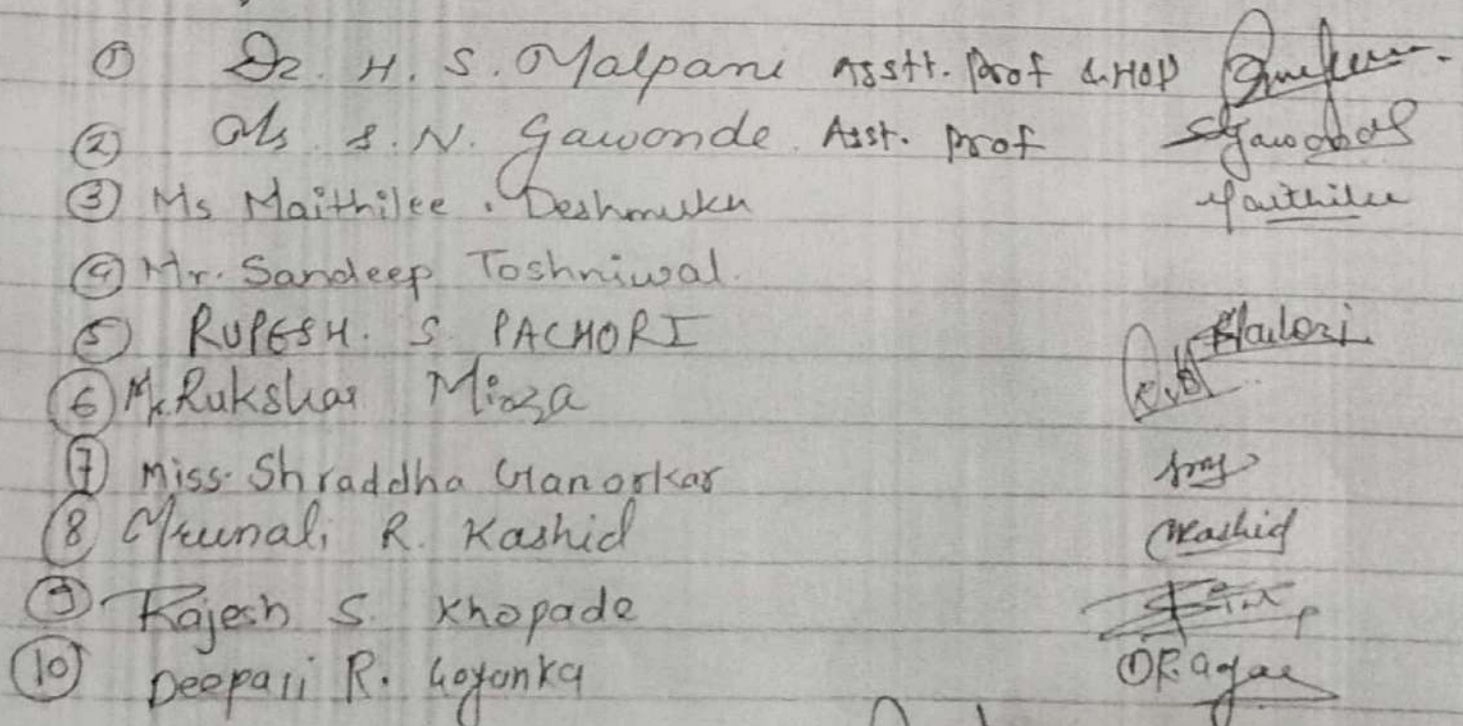 ① Dr. H. S. Malpani Asstt. Prof & HOD
② Ms S. N. Gawande Asst. Prof SGawande
③ Ms Maithilee . Deshmukh Maithilee
④ Mr. Sandeep Toshniwal.
⑤ RUPESH. S PACHORI
⑥ Rukshar Mirza
⑦ Miss. Shraddha Ganorkar
⑧ Mrunali R. Kashid MKashid
⑨ Rajesh S. Khopade
⑩ Deepali R. Goyanka